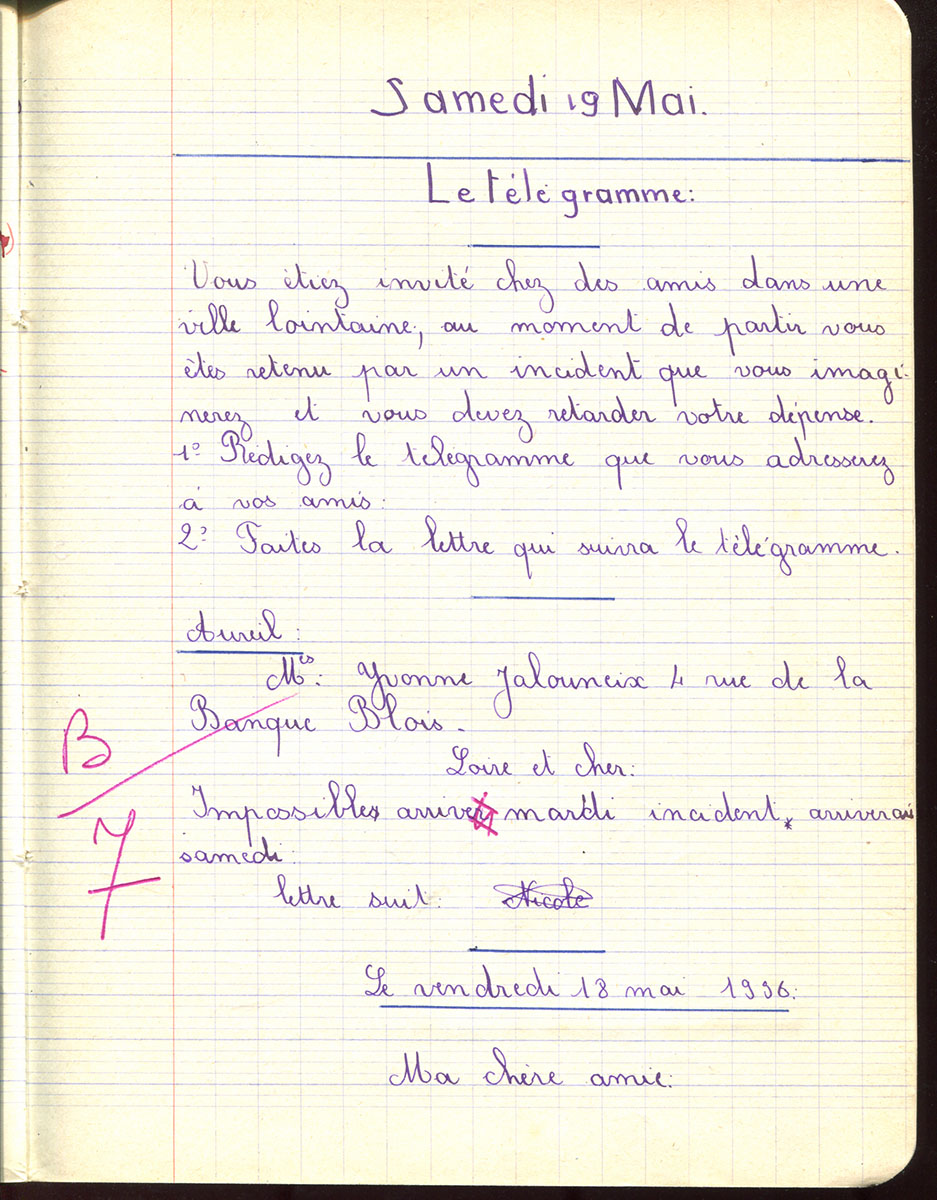 Samedi 19 Mai.
Le télégramme:
Vous étiez invité chez des amis dans une
ville lointaine, au moment de partir vous
êtes retenu par un incident que vous imagi-
nerez et vous devez retarder votre dépense.
1º Rédigez le télégramme que vous adresserez
à vos amis:
2º Faites la lettre qui suivra le télégramme.
Aureil:
Mes: Yvonne Jalouneix 4 rue de la
Banque Blois.
B
Loire et cher:
7
Impossible arriver mardi incident, arriverai
samedi
lettre suit: Nicole
Le vendredi 18 mai 1956:
Ma chère amie: